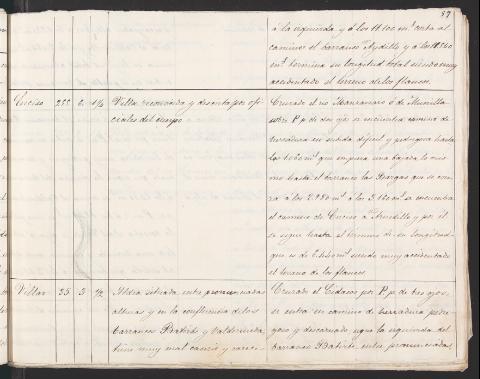 57
á la izquierda, y á los 11.100 mˢ corta al
camino el barranco Aydillo y á los 11.560
mˢ termina su longitud total siendo muy
accidentado el terreno de los flancos.
Enciso 255 6 1½ Villa reconocida y descrita por ofi-
ciales del cuerpo.
Cruzado el rio Manzanares ó de Munilla
sobre P. p. de dos ojos se encuentra camino de
herradura en subida dificil y pedregosa hasta
los 1.060 mˢ que empieza una bajada lo mis-
mo hasta el barranco las Bargas que se cru-
za á los 2.980 mˢ á los 3.620 mˢ se encuentra
el camino de Enciso á Arnedillo y por él
se sigue hasta el termino de su longitud
que es de mˢ siendo muy accidentado
el terreno de los flancos.
Villar 25 3 ½ Aldea situada entre pronunciadas
alturas y en la confluencia de los
barrancos y Valdeviuda
tiene muy mal caserio y carece
Cruzado el Cidacos por P. p. de tres ojos
se entra en camino de herradura pedre-
goso y descarnado sigue la izquierda del
barranco entre pronunciadas